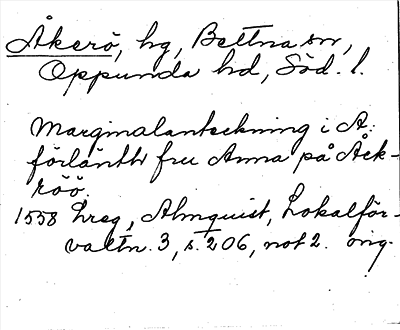 Åkerö, hg, Bettna sn,
Oppunda hd, Söd. l.
Marginalanteckning i Å:
förlänth fru Anna på Åck-
röö.
1558 Lreg, Almquist, Lokalför-
valtn. 3, s. 206, not 2. orig.